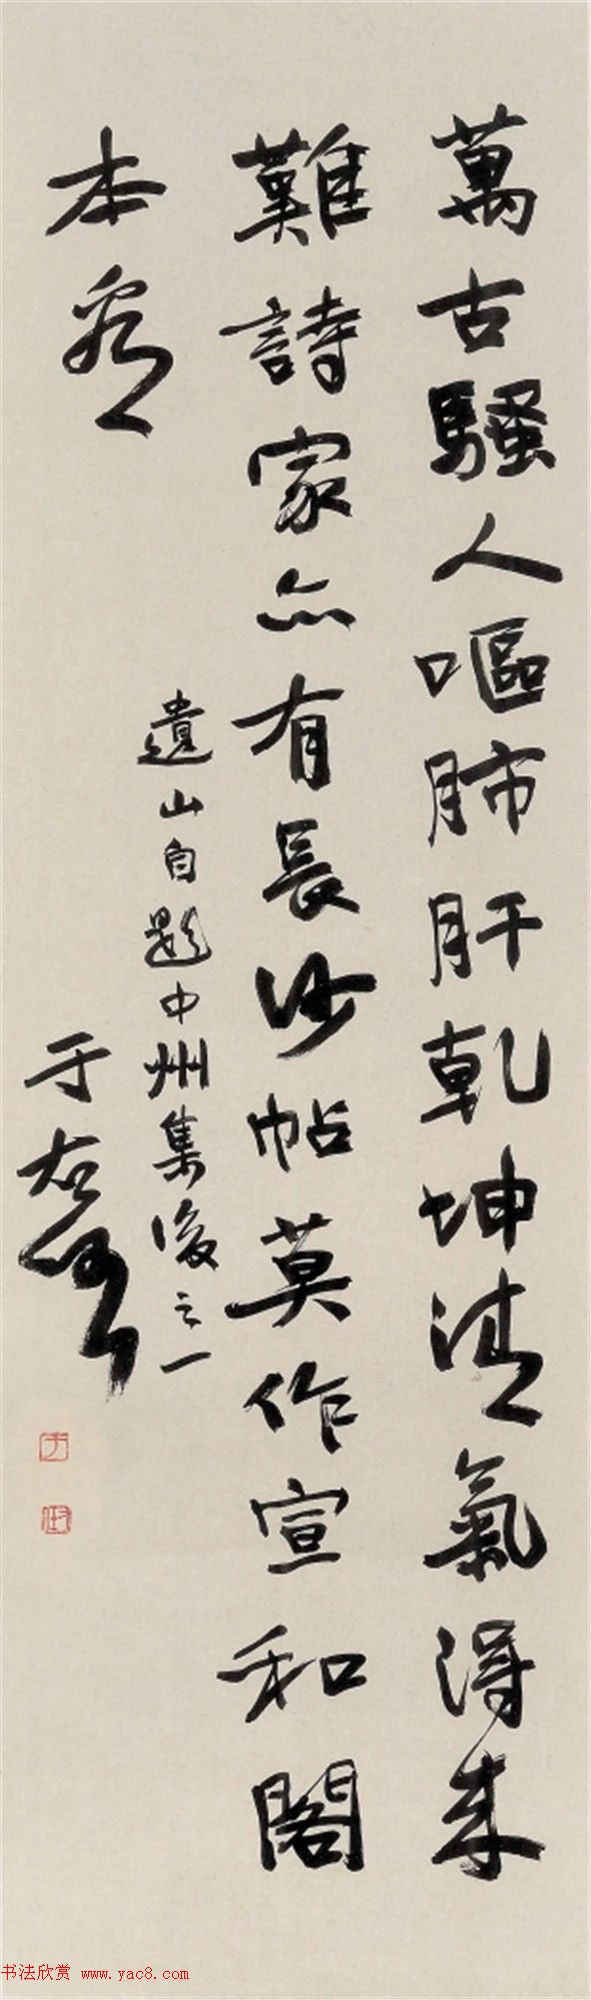 萬古騷人嘔肺肝乾坤清氣得來
難詩家亦有長沙帖莫作宣和閣
本看
遺山自題中州集後之一
于右任
书法欣赏 www.yac8.com